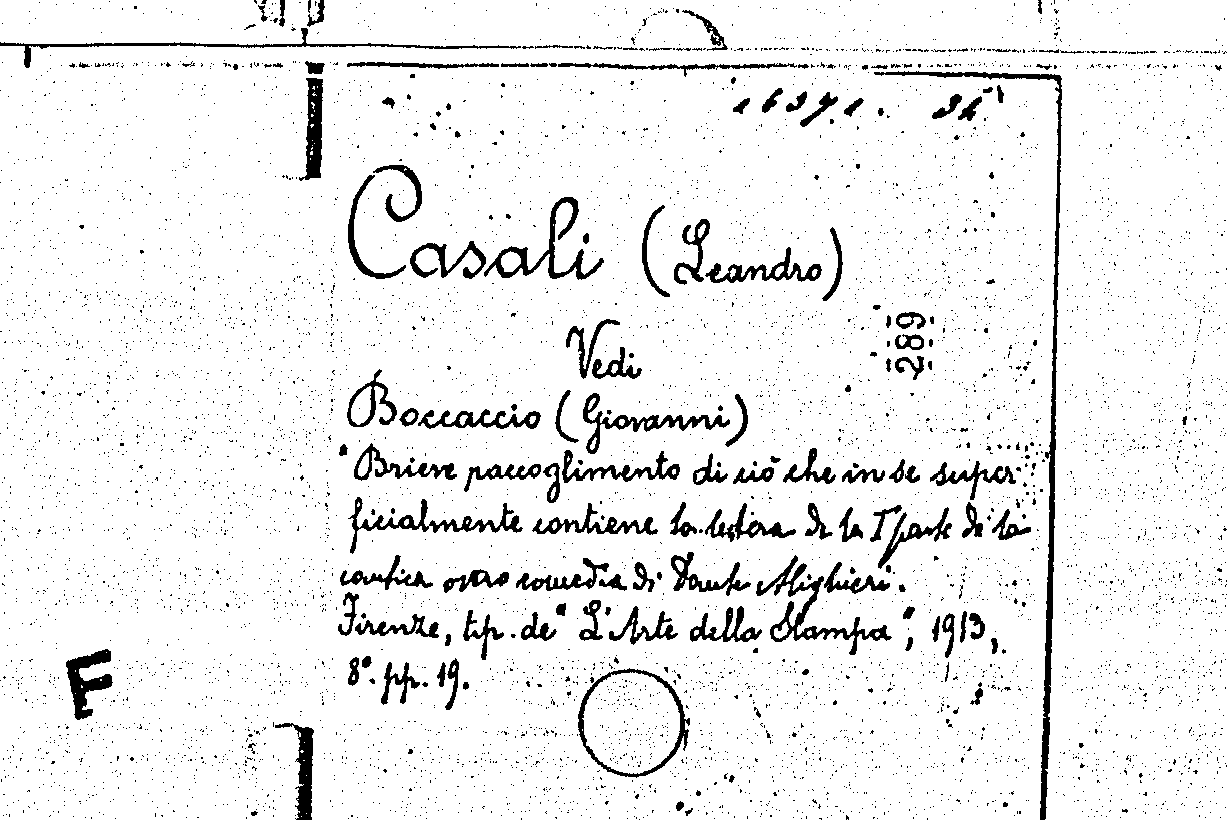 16371. 34
Casali (Leandro)
289
Vedi
Boccaccio (Giovanni)
"Brieve raccoglimento di ciò che in se super
ficialmente contiene la lectera de la I parte de la
cantica overo comedia di Dante Alighieri.
Firenze, tip. de "L'Arte della Stampa", 1913,
8°. pp. 19.
F